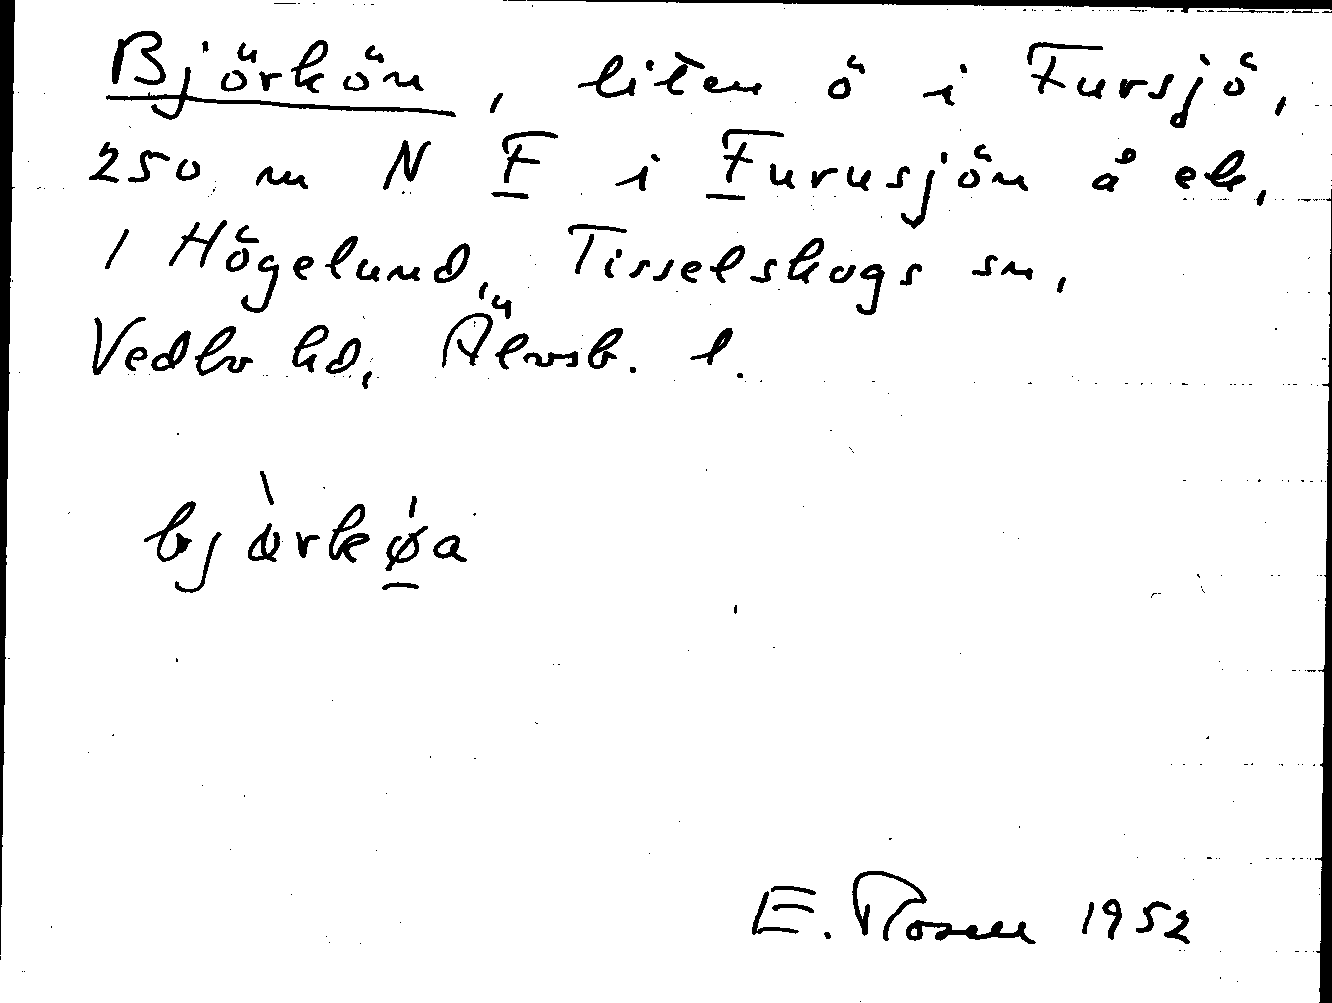 Björkön, liten ö i Fursjö,
250 m N F i Furusjön å ek,
1 Högelund, Tisselskogs sn,
Vedbo hd, Älvsb. l.
bjòrkǿa
E. Rosell 1952